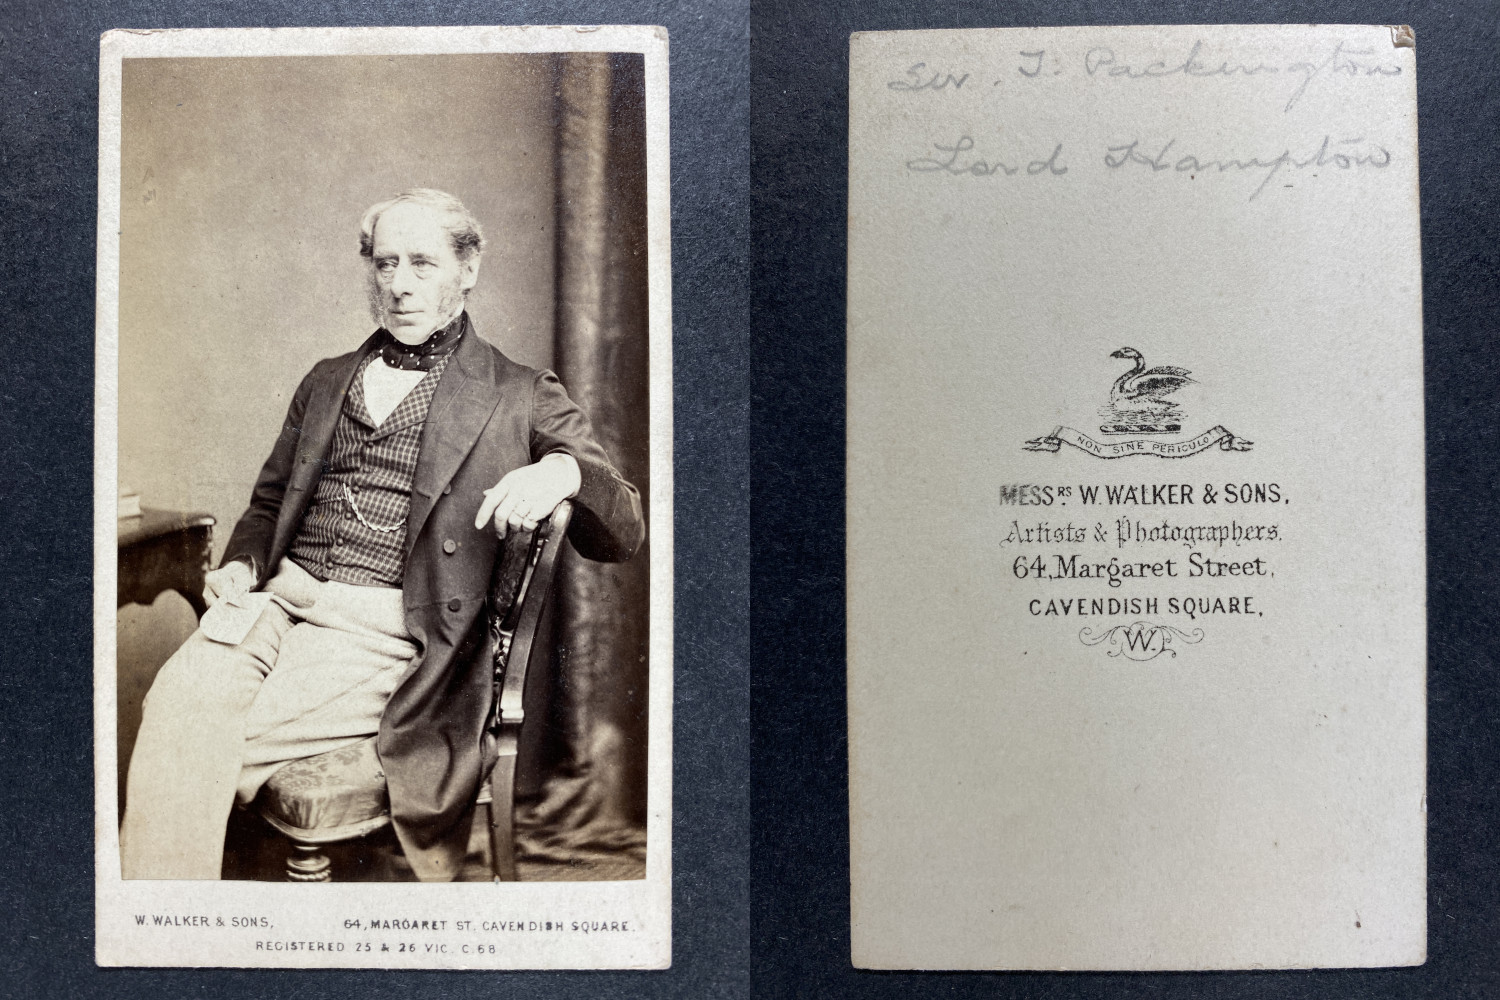 W. WALKER & SONS, 64, MARGARET ST. CAVENDISH SQUARE.
REGISTERED 25 & 26 VIC. C. 68
Sir. J: Packington
Lord Hampton
NON SINE PERICULO
MESSRS W. WALKER & SONS,
Artists & Photographers.
64, Margaret Street,
CAVENDISH SQUARE,
W.